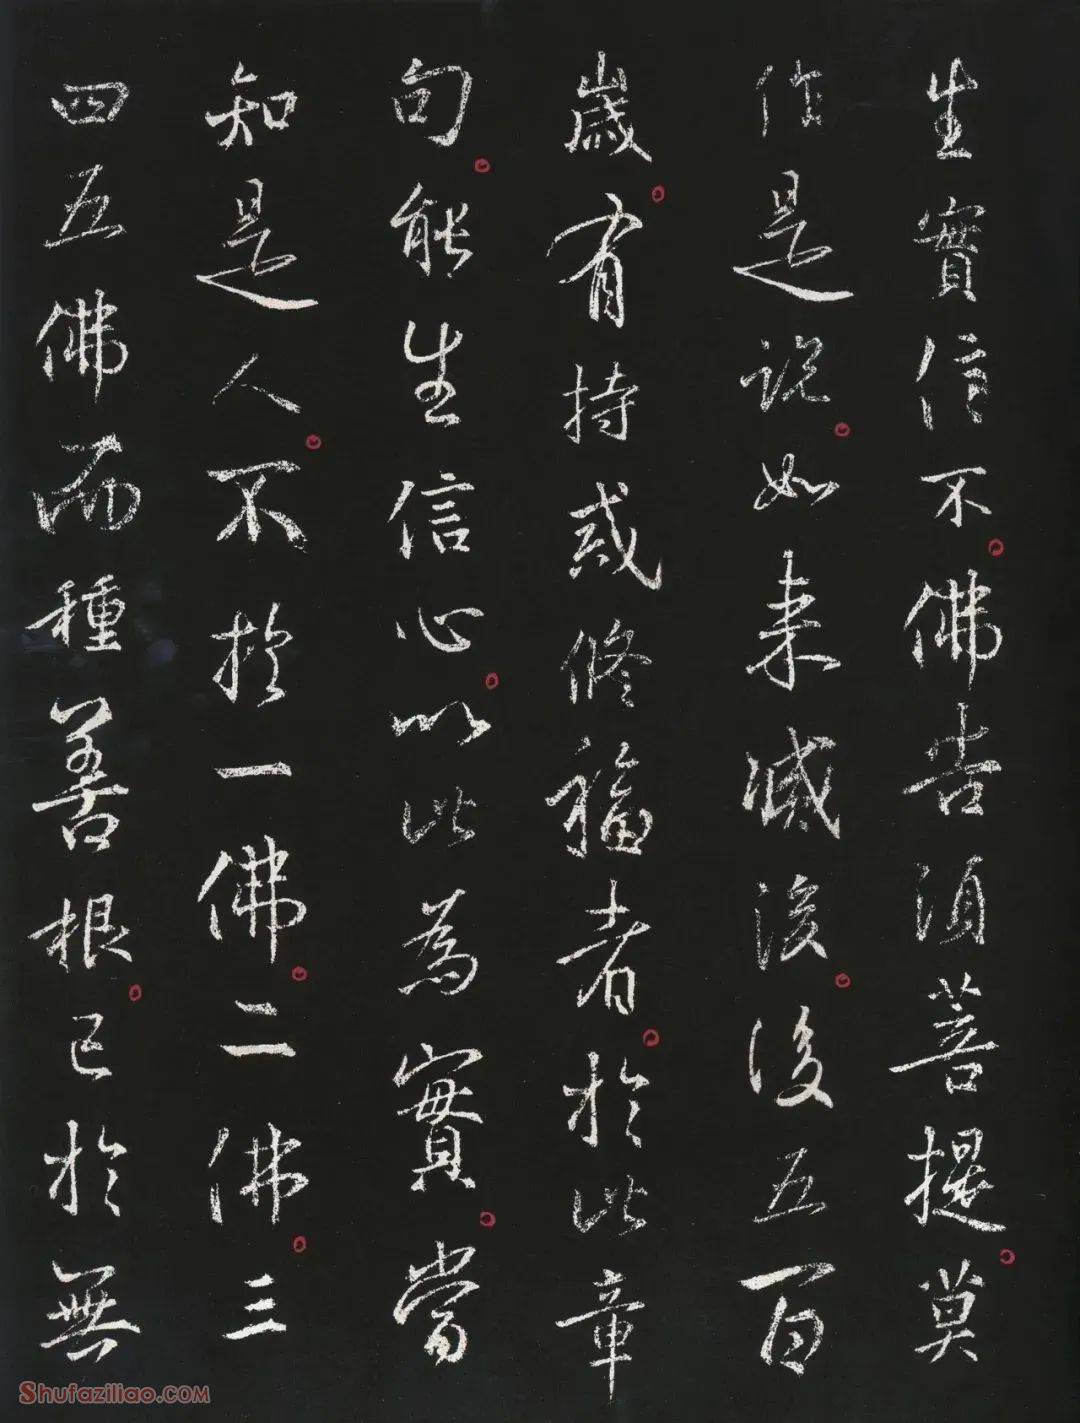 生實信不佛告須菩提莫
作是說如来滅後後五百
歲有持戒修福者於此章
句能生信心以此為實當
知是人不於一佛二佛三
四五佛而種善根已於無
Shufaziliao.COM